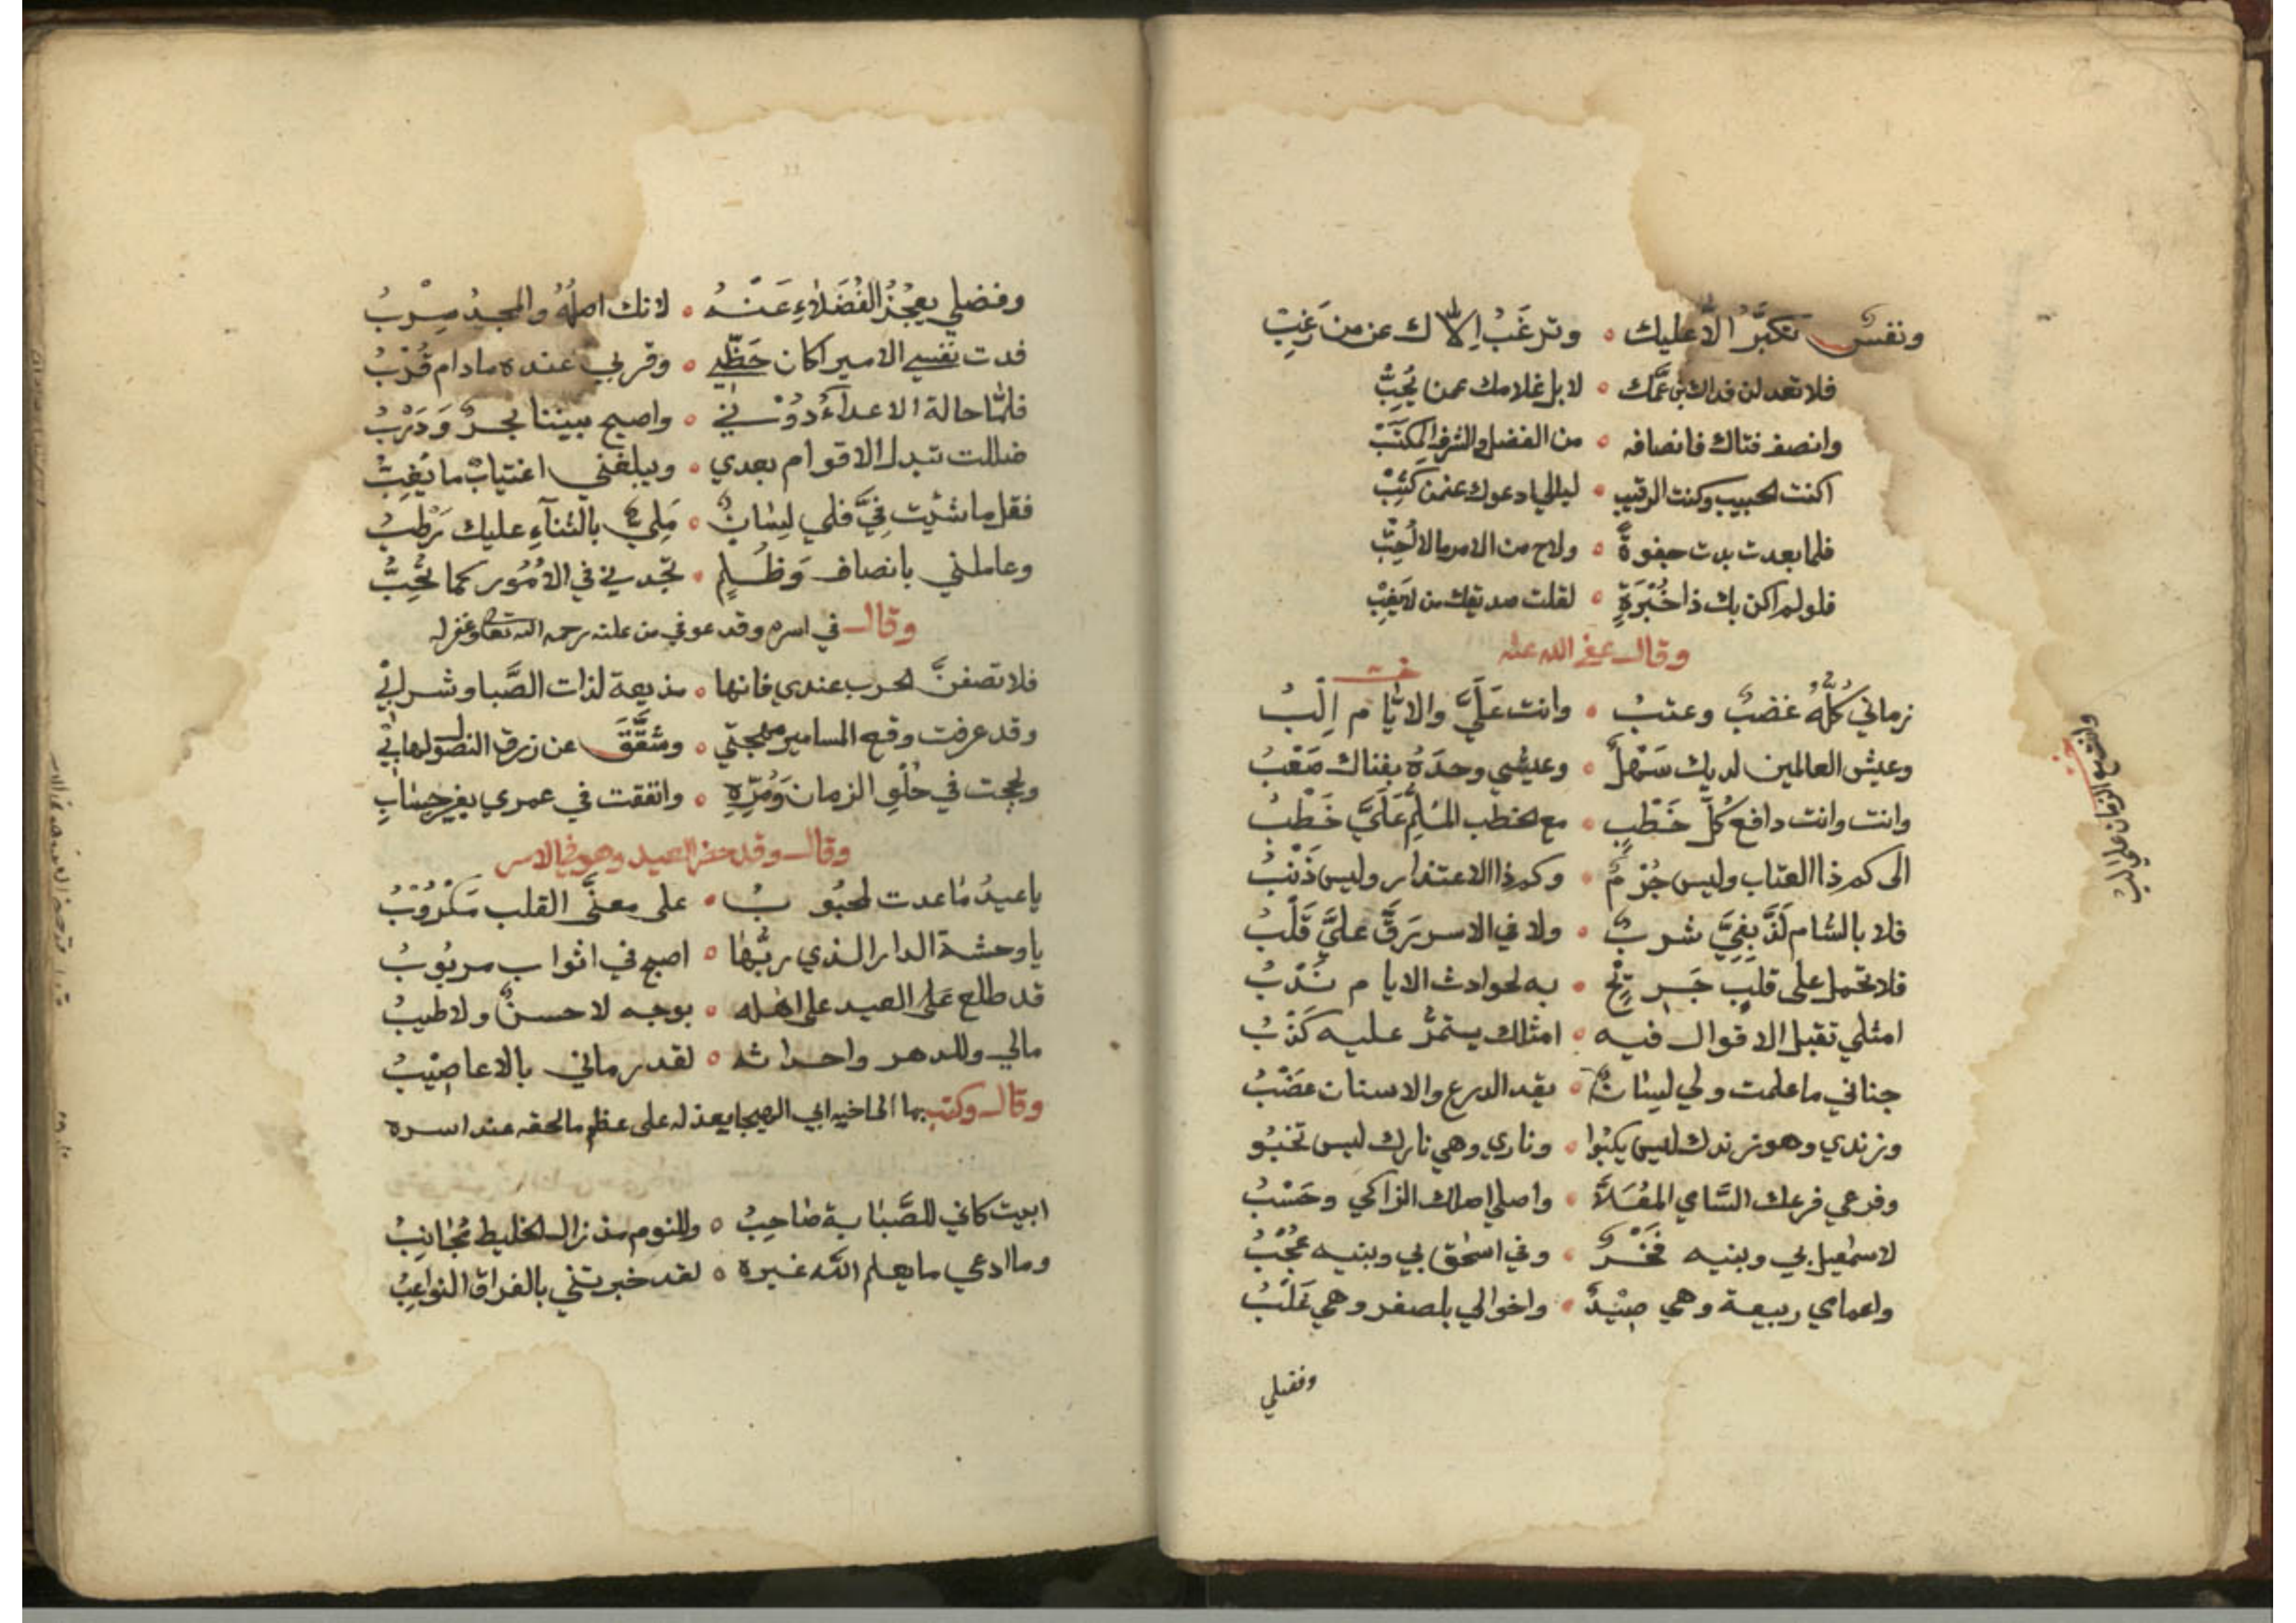 ونفسٌ تكبَّرُ الا عليك ه وترغَبُ إلاك عن من رَغِبْ
فلا تعدلن فداك بن عمّك ه لا بل غلامك عمن يُحِبُّ
وانصف فتاك فانصافه ه من الفضل والشرف المكتَسَبْ
اكنت الحبيب وكنت القريب ه ليالي ادعوك عن من كَثَبْ
فلما بعدت بدت جفوةٌ ه ولاح من الامر ما لا أُحِبّ
فلو لم اكن بك ذا خُبْرَةٍ ه لقلت صديقك من لم يَغِبْ
وقال عفى الله عنه
زماني كُلُّهُ غضبٌ وعتبُ ه وانت عَلَيَّ والايّام اِلْبُ
وعيش العالمين لديك سَهْلٌ ه وعيشي وحدَهُ بفناك صَعْبُ
وانت وانت دافع كُلّ خَطْبٍ ه مع الخطب المُلِمِّ عَلَيَّ خَطْبُ
الى كم ذا العتاب وليس جُرْمٌ ه وكم ذا الاعتذار وليس ذَنْبُ
فلا بالشام لَذَّ بِفِيَّ شربٌ ه ولا في الاسر رَقَّ عليَّ قَلْبُ
فلا تحمل على قلبٍ جَرِيْحٍ ه به لحوادث الايام نُدْبُ
امثلي تقبل الاقوال فيه ه امثلك يستمرُّ عليه كَذْبُ
جناني ما علمت ولي لسانٌ ه يقد الدرع والاسنان عَضْبُ
وزندي وهو زندك ليس يكبُوا ه وناري وهي نارك ليس تخبُو
وفرعي فرعك السَّامي المُعَلاَّ ه واصلي اصلك الزاكي وحَسْبُ
لاسمعيل بي وبنيه فَخْرٌ ه وفي اسحق بي وبنيه عُجْبُ
واعمامي ربيعة وهي صِيْدٌ ه واخوالي بلصفر وهي غَلْبُ
وفضلي
وانت مع الزمان علي الب
وفضلي يعجُزُ الفُضَلاءِ عَنْهُ ه لانك اصلُهُ والمجدُ سِرْبُ
فدت نفسي الامير اكان حَظّي ه وقربي عنده مادام قُرْبُ
فلمّا حالة الاعداءُ دُوْني ه واصبح بيننا بحرٌ وَدَرْبُ
ضللت تبدل الاقوام بعدي ه ويبلغني اغتيابٌ ما يُغِبُّ
فقل ما شئت فِيَّ فلي لِسانٌ ه مَلِيٌّ بالثناءِ عليك رَطْبُ
وعاملني بانصاف وَظُلمٍ ه تجدني في الاُمُور كما تُحِبُّ
وقال في اسره وقد عوفي من علته رحمه الله تعالى وغفر له
فلا تصفنَّ الحرب عندي فانها ه مذيعة لذات الصَّبا وشرابي
وقد عرفت وقع المسامير مهجتي ه وشقَّقَ عن زرق النصول اهابي
ولججت في حُلوِ الزمان وَمُرِّهِ ه وانفقت في عمري بغير حِسَابِ
وقال وقد حضر العيد وهو في الاسر
يا عيدُ ما عدت لمحبُوبُ ه على معنَّى القلب مَكْرُوْبُ
يا وحشة الدار الذي ربُّها ه اصبح في اثواب مربُوبُ
قد طلع عَلى العيد على اهله ه بوجه لا حسنٌ ولا طيبُ
مالي وللدهر واحداثه ه لقد رماني بالاعاصِيْبُ
وقال وكتب بها الى اخيه ابي الهيجا يعذله على عظم ما لحقه عند اسره
ابيت كاني للصَّبَابة صَاحِبُ ه وللنوم مذ زال الخليط مُجَانِبُ
وما ادعي ما يعلم اللّه غيره ه لقد خبرتني بالفراق النواعِبُ